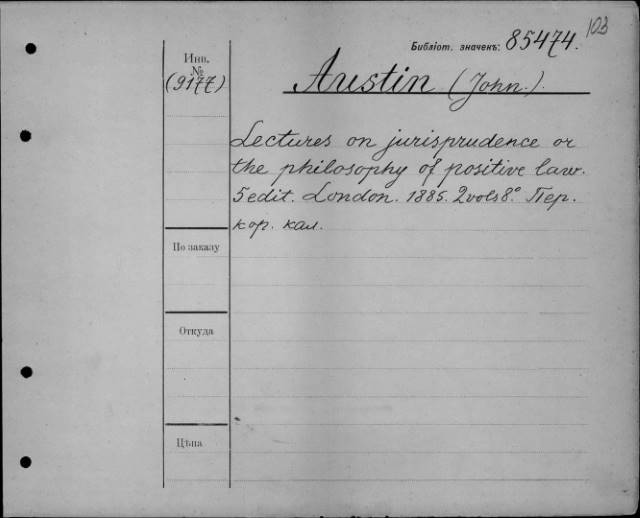 103
Библіот. значекъ: 85474.
Инв.
№
(9177)
Austin (John.).
Lectures on jurisprudence or
the philosophy of positive law.
5 edit. London. 1885. 2 vols 8° Пер.
кор. кал.
По заказу
Откуда
Цѣна